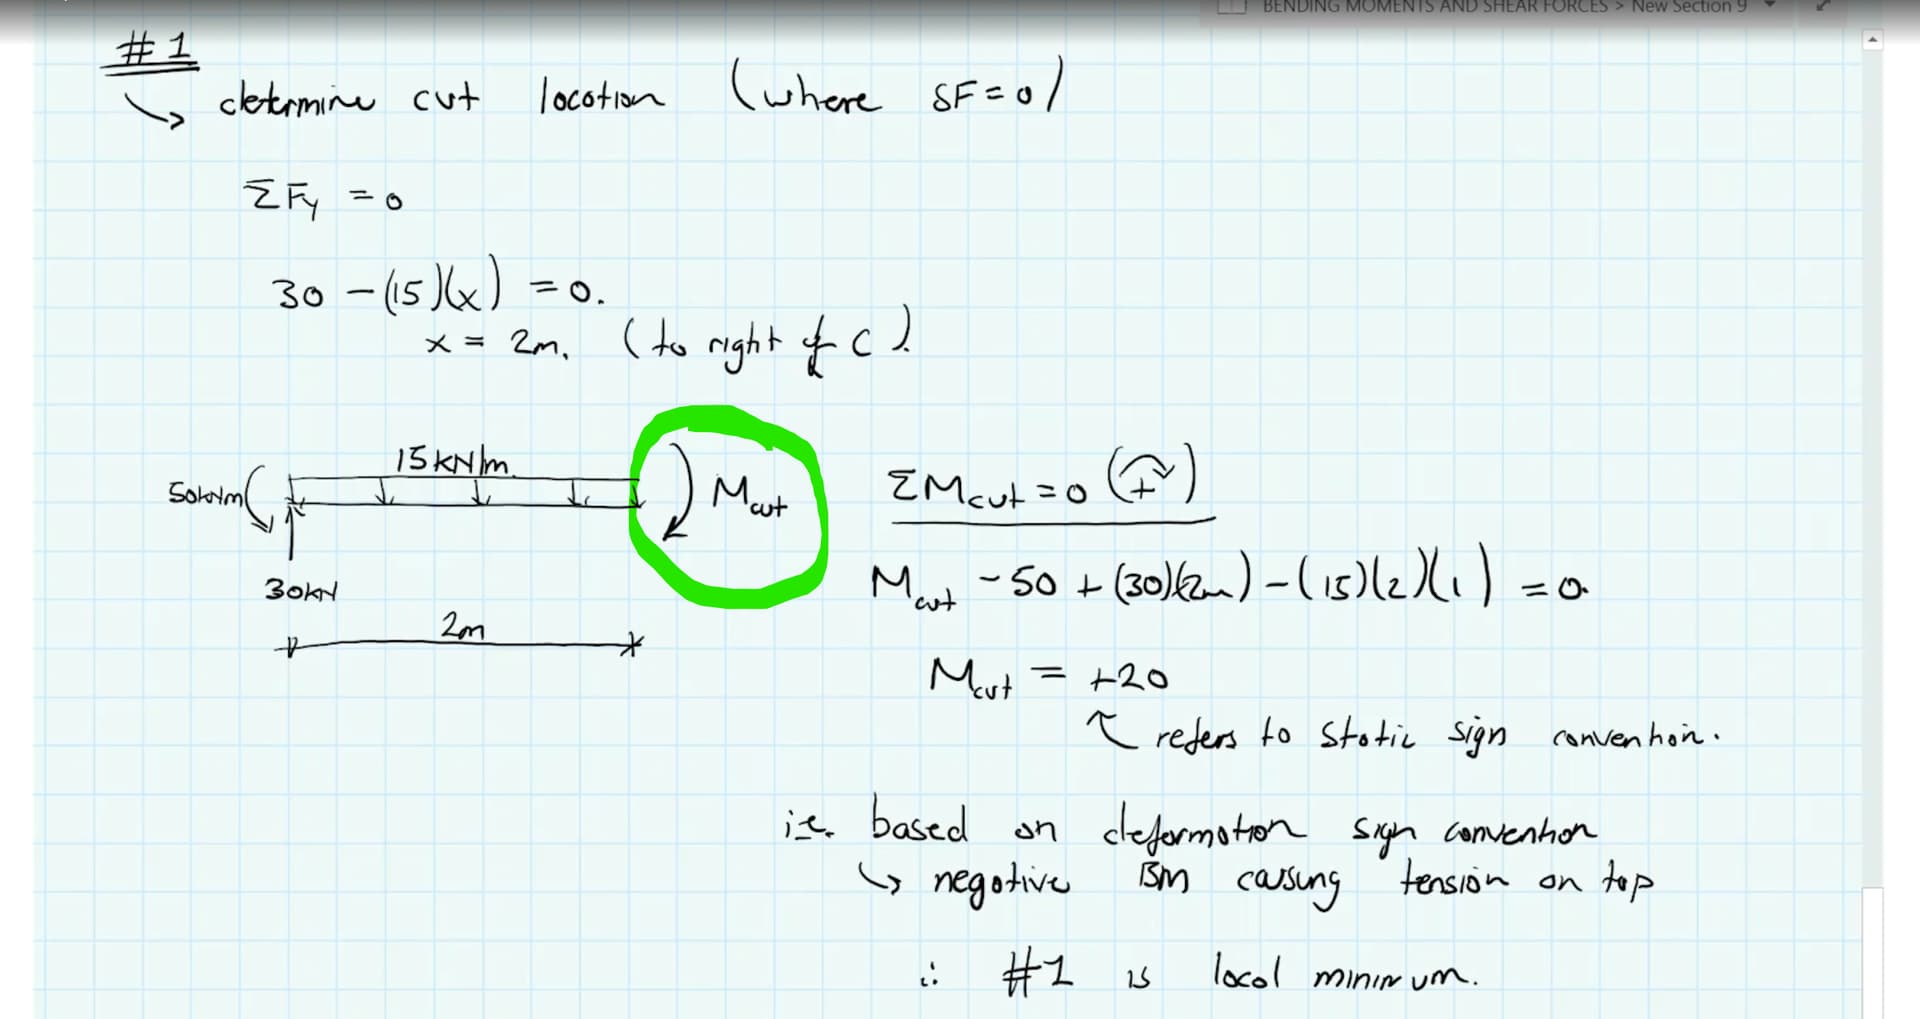 BENDING MOMENTS AND SHEAR FORCES > New Section 9
#1
↳ determine cut location (where SF=0)
ΣFy = 0
30 - (15)(x) = 0.
x = 2m. (to right of C).
15kN/m
50kNm
Mcut
30kN
2m
ΣMcut = 0 (↷+)
Mcut - 50 + (30)(2m) - (15)(2)(1) = 0
Mcut = +20
↖ refers to static sign convention.
i.e. based on deformation sign convention
↳ negative BM causing tension on top
∴ #1 is local minimum.